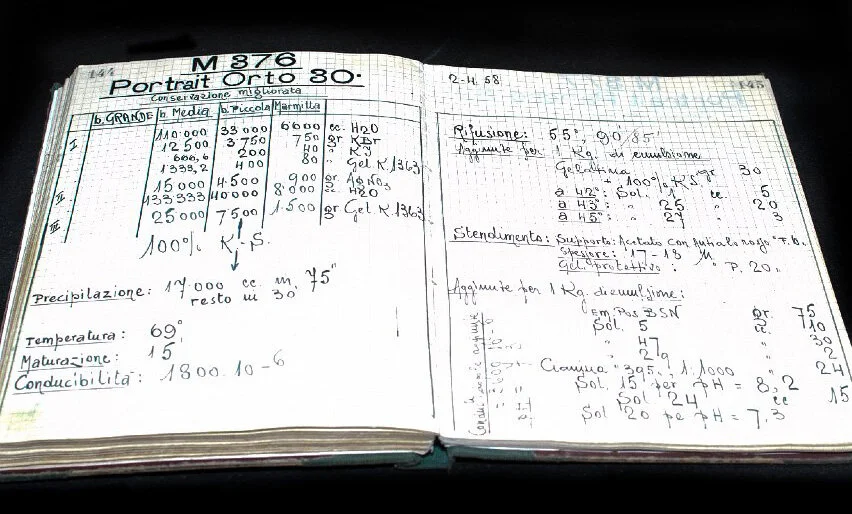 144
M 376
Portrait Orto 30.
conservazione migliorata
b. GRANDE b. Media b. Piccola Marmilla
I 110.000 33 000 6600 cc. H2O
12 500 3 750 750 gr KBr
666,6 200 40 " KJ
1333,2 400 80 " Gel K.1363
II 15 000 4.500 900 gr AgNO3
133333 40000 8.000 " H2O
III 25 000 7500 1.500 gr Gel K.1363
100% K.S.
Precipitazione: 17.000 cc. in 75"
resto in 30"
Temperatura: 69°
Maturazione: 15'
Conducibilità: 1800.10-6
2-4.58
145
Rifusione: 55°, 90/85'
Aggiunte per 1 Kg. di emulsione
Gelatina gr 30
100% K.S.
a 42°: Sol. 1 cc. 5
a 43°: " 25 " 20
a 45°: " 27 " 3
Stendimento: Supporto: Acetato con Antialo rosso "F.6"
Spessore: 17-18 M
Gel. protettivo: " P. 20.
Aggiunte per 1 Kg. di emulsione:
Em. Pos BSN gr. 75
Sol. 5 cc. 10
" 47 " 30
" 29 " 2
Cianina "395" 1:1000 " 24
Sol. 15 per pH = 8,2
Sol 24 cc 15
Sol 20 pe pH = 7,3